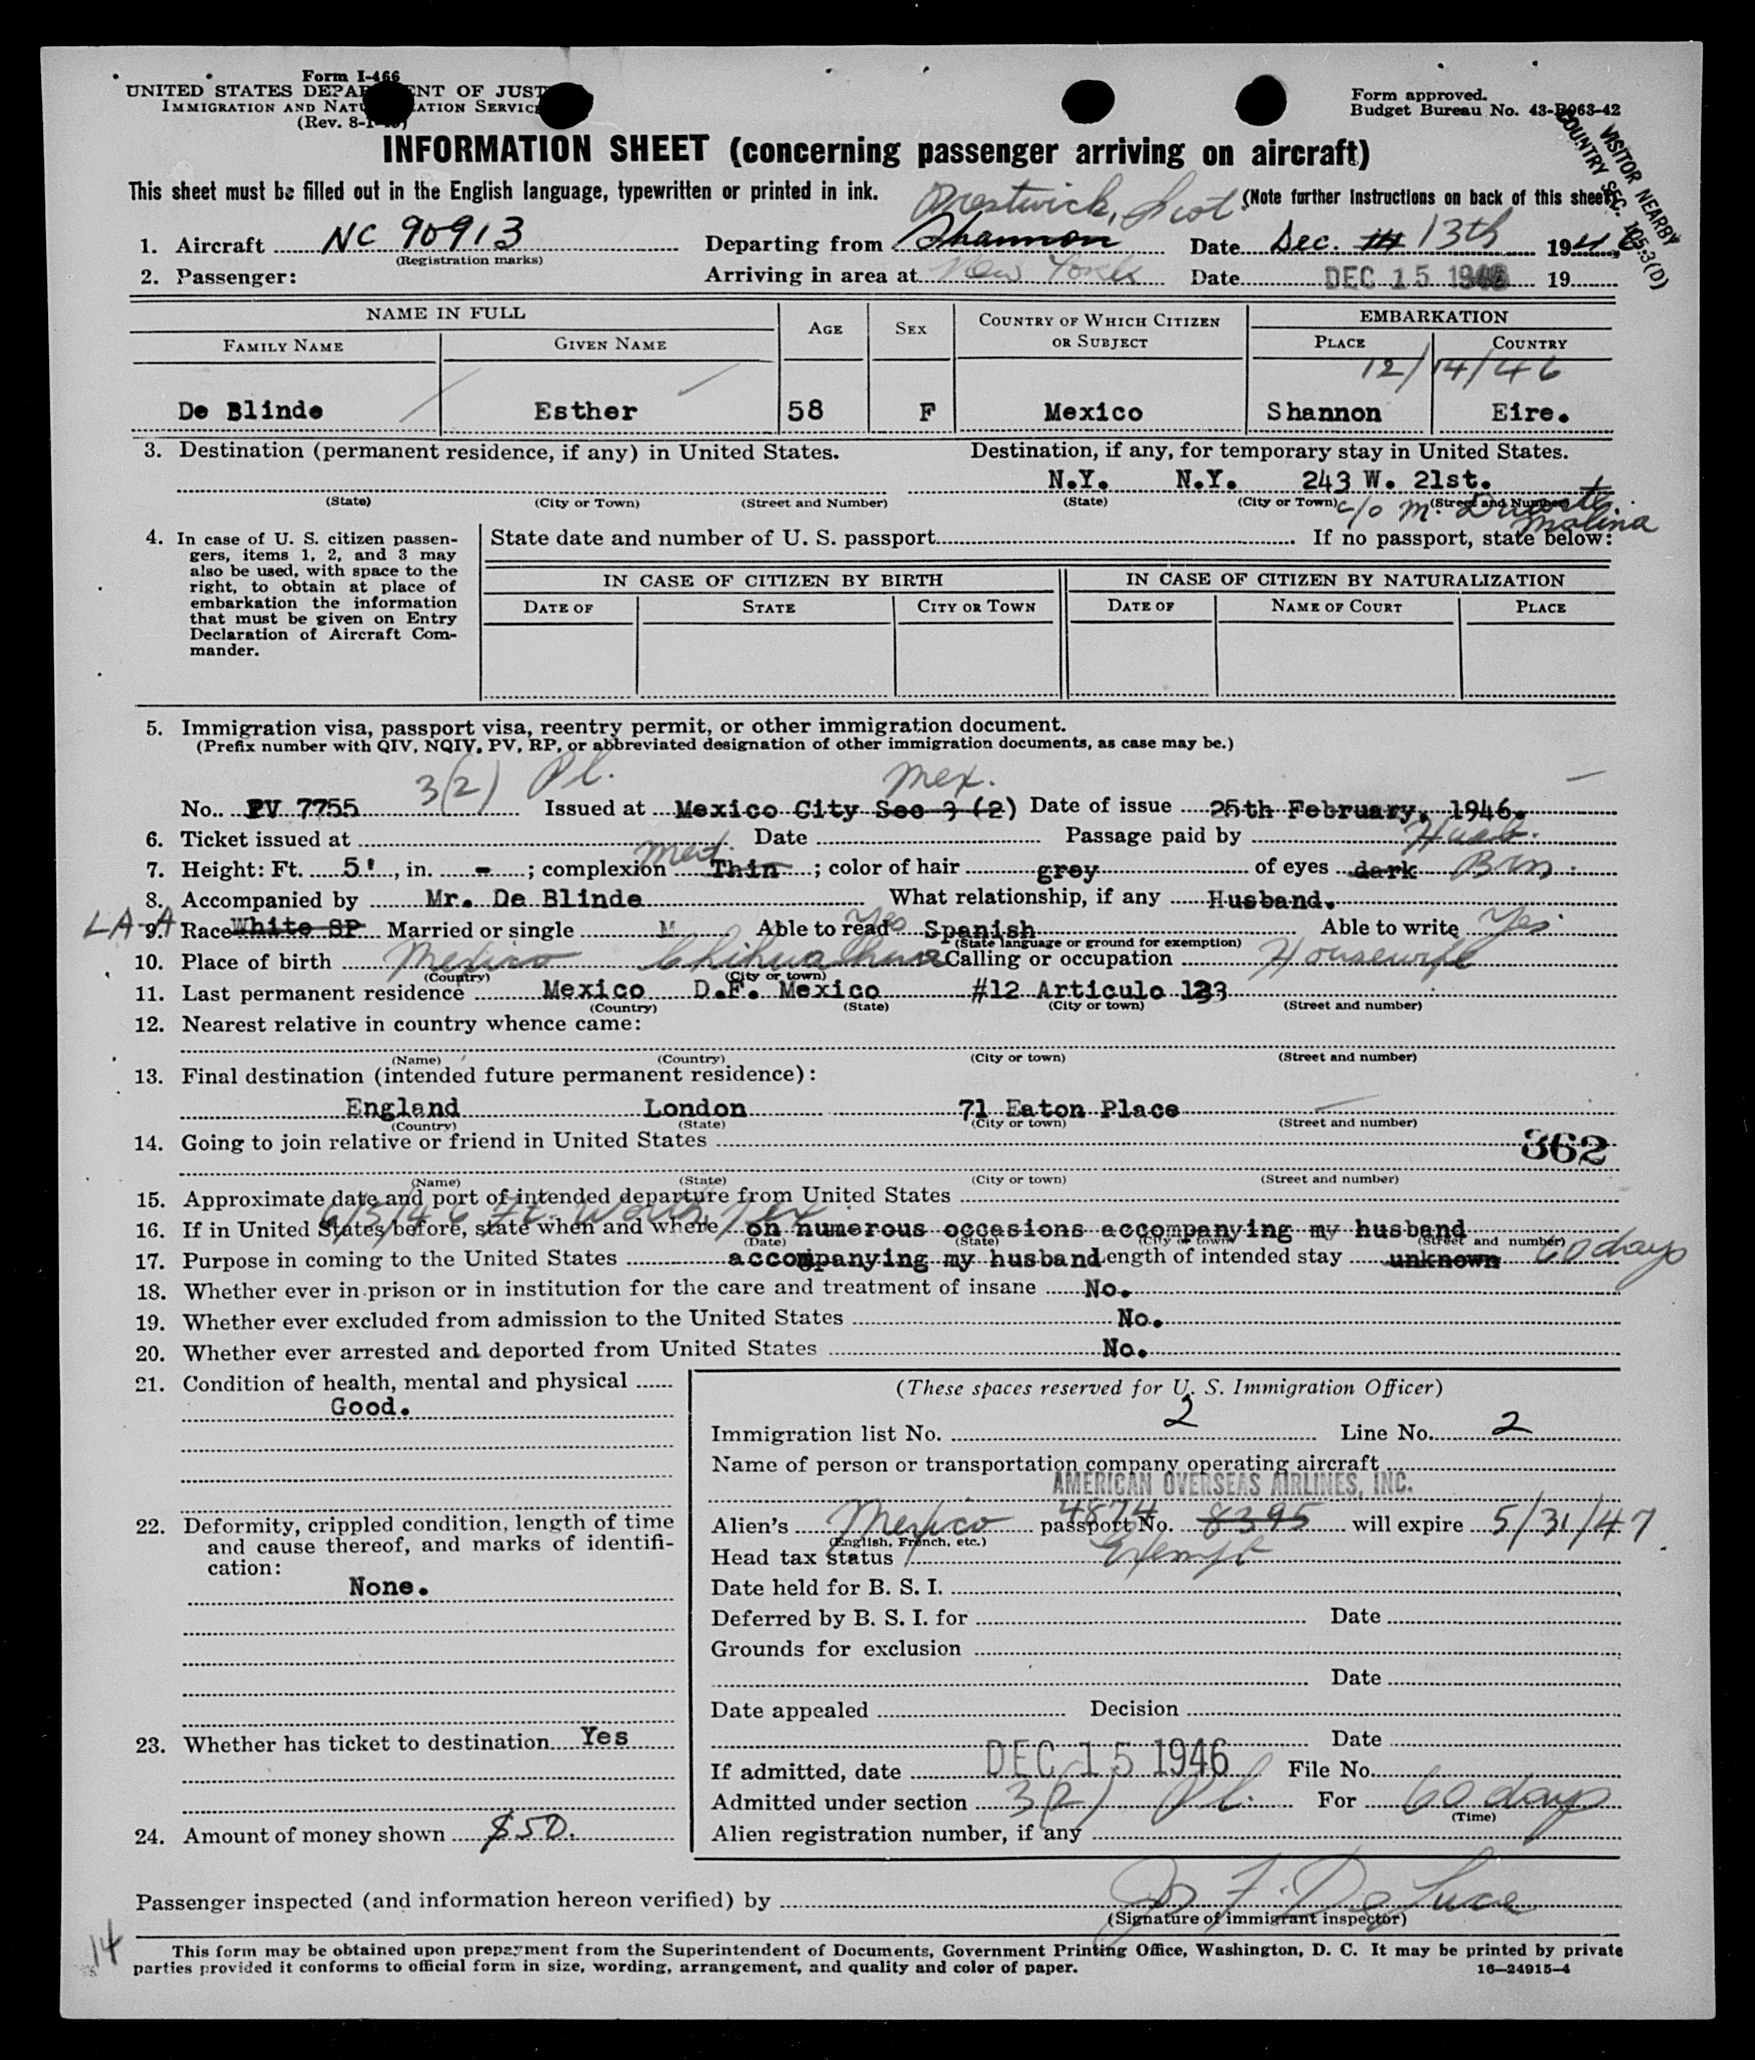 Form I-466
UNITED STATES DEPARTMENT OF JUSTICE
IMMIGRATION AND NATURALIZATION SERVICE
(Rev. 8-1-45)
Form approved.
Budget Bureau No. 43-R063-42
VISITOR NEARBY
COUNTRY SEC. 105.3(D)
INFORMATION SHEET (concerning passenger arriving on aircraft)
This sheet must be filled out in the English language, typewritten or printed in ink. (Note further instructions on back of this sheet)
Prestwick, Scot
1. Aircraft NC 90913 Departing from Shannon Date Dec. 13th 1946
(Registration marks)
2. Passenger: Arriving in area at New York Date DEC 15 1946 19
NAME IN FULL AGE SEX COUNTRY OF WHICH CITIZEN OR SUBJECT EMBARKATION
FAMILY NAME GIVEN NAME PLACE COUNTRY
12/14/46
De Blinde Esther 58 F Mexico Shannon Eire.
3. Destination (permanent residence, if any) in United States. Destination, if any, for temporary stay in United States.
N.Y. N.Y. 243 W. 21st.
(State) (City or Town) (Street and Number) (State) (City or Town) (Street and Number)
c/o M. Duarte
Molina
4. In case of U. S. citizen passen-
gers, items 1, 2, and 3 may
also be used, with space to the
right, to obtain at place of
embarkation the information
that must be given on Entry
Declaration of Aircraft Com-
mander.
State date and number of U. S. passport If no passport, state below:
IN CASE OF CITIZEN BY BIRTH IN CASE OF CITIZEN BY NATURALIZATION
DATE OF STATE CITY OR TOWN DATE OF NAME OF COURT PLACE
5. Immigration visa, passport visa, reentry permit, or other immigration document.
(Prefix number with QIV, NQIV, PV, RP, or abbreviated designation of other immigration documents, as case may be.)
3(2) Pl. Mex.
No. PV 7755 Issued at Mexico City Sec 3 (2) Date of issue 25th February, 1946.
6. Ticket issued at Date Passage paid by Husb.
7. Height: Ft. 5', in. - ; complexion Thin Med. ; color of hair grey of eyes dark Brn.
8. Accompanied by Mr. De Blinde What relationship, if any Husband.
LA-A
9. Race White SP Married or single M Able to read Yes Spanish Able to write Yes
(State language or ground for exemption)
10. Place of birth Mexico Chihuahua Calling or occupation Housewife
(Country) (City or town)
11. Last permanent residence Mexico D.F. Mexico #12 Articulo 123
(Country) (State) (City or town) (Street and number)
12. Nearest relative in country whence came:
(Name) (Country) (City or town) (Street and number)
13. Final destination (intended future permanent residence):
England London 71 Eaton Place
(Country) (State) (City or town) (Street and number)
14. Going to join relative or friend in United States
362
(Name) (State) (City or town) (Street and number)
15. Approximate date and port of intended departure from United States
6/3/46 Ft. Worth, Tex
16. If in United States before, state when and where on numerous occasions accompanying my husband
(Date) (State) (City or town) (Street and number)
17. Purpose in coming to the United States accompanying my husband Length of intended stay unknown 60 days
18. Whether ever in prison or in institution for the care and treatment of insane No.
19. Whether ever excluded from admission to the United States No.
20. Whether ever arrested and deported from United States No.
21. Condition of health, mental and physical
Good.
22. Deformity, crippled condition, length of time
and cause thereof, and marks of identifi-
cation:
None.
23. Whether has ticket to destination Yes
24. Amount of money shown $50.
(These spaces reserved for U. S. Immigration Officer)
Immigration list No. 2 Line No. 2
Name of person or transportation company operating aircraft
AMERICAN OVERSEAS AIRLINES, INC.
4874
Alien's Mexico passport No. 8395 will expire 5/31/47
(English, French, etc.)
Head tax status Exempt
Date held for B. S. I.
Deferred by B. S. I. for Date
Grounds for exclusion
Date
Date appealed Decision
Date
If admitted, date DEC 15 1946 File No.
Admitted under section 3(2) Pl. For 60 days
(Time)
Alien registration number, if any
Passenger inspected (and information hereon verified) by
(Signature of immigrant inspector)
14
This form may be obtained upon prepayment from the Superintendent of Documents, Government Printing Office, Washington, D. C. It may be printed by private
parties provided it conforms to official form in size, wording, arrangement, and quality and color of paper.
16—24915-4